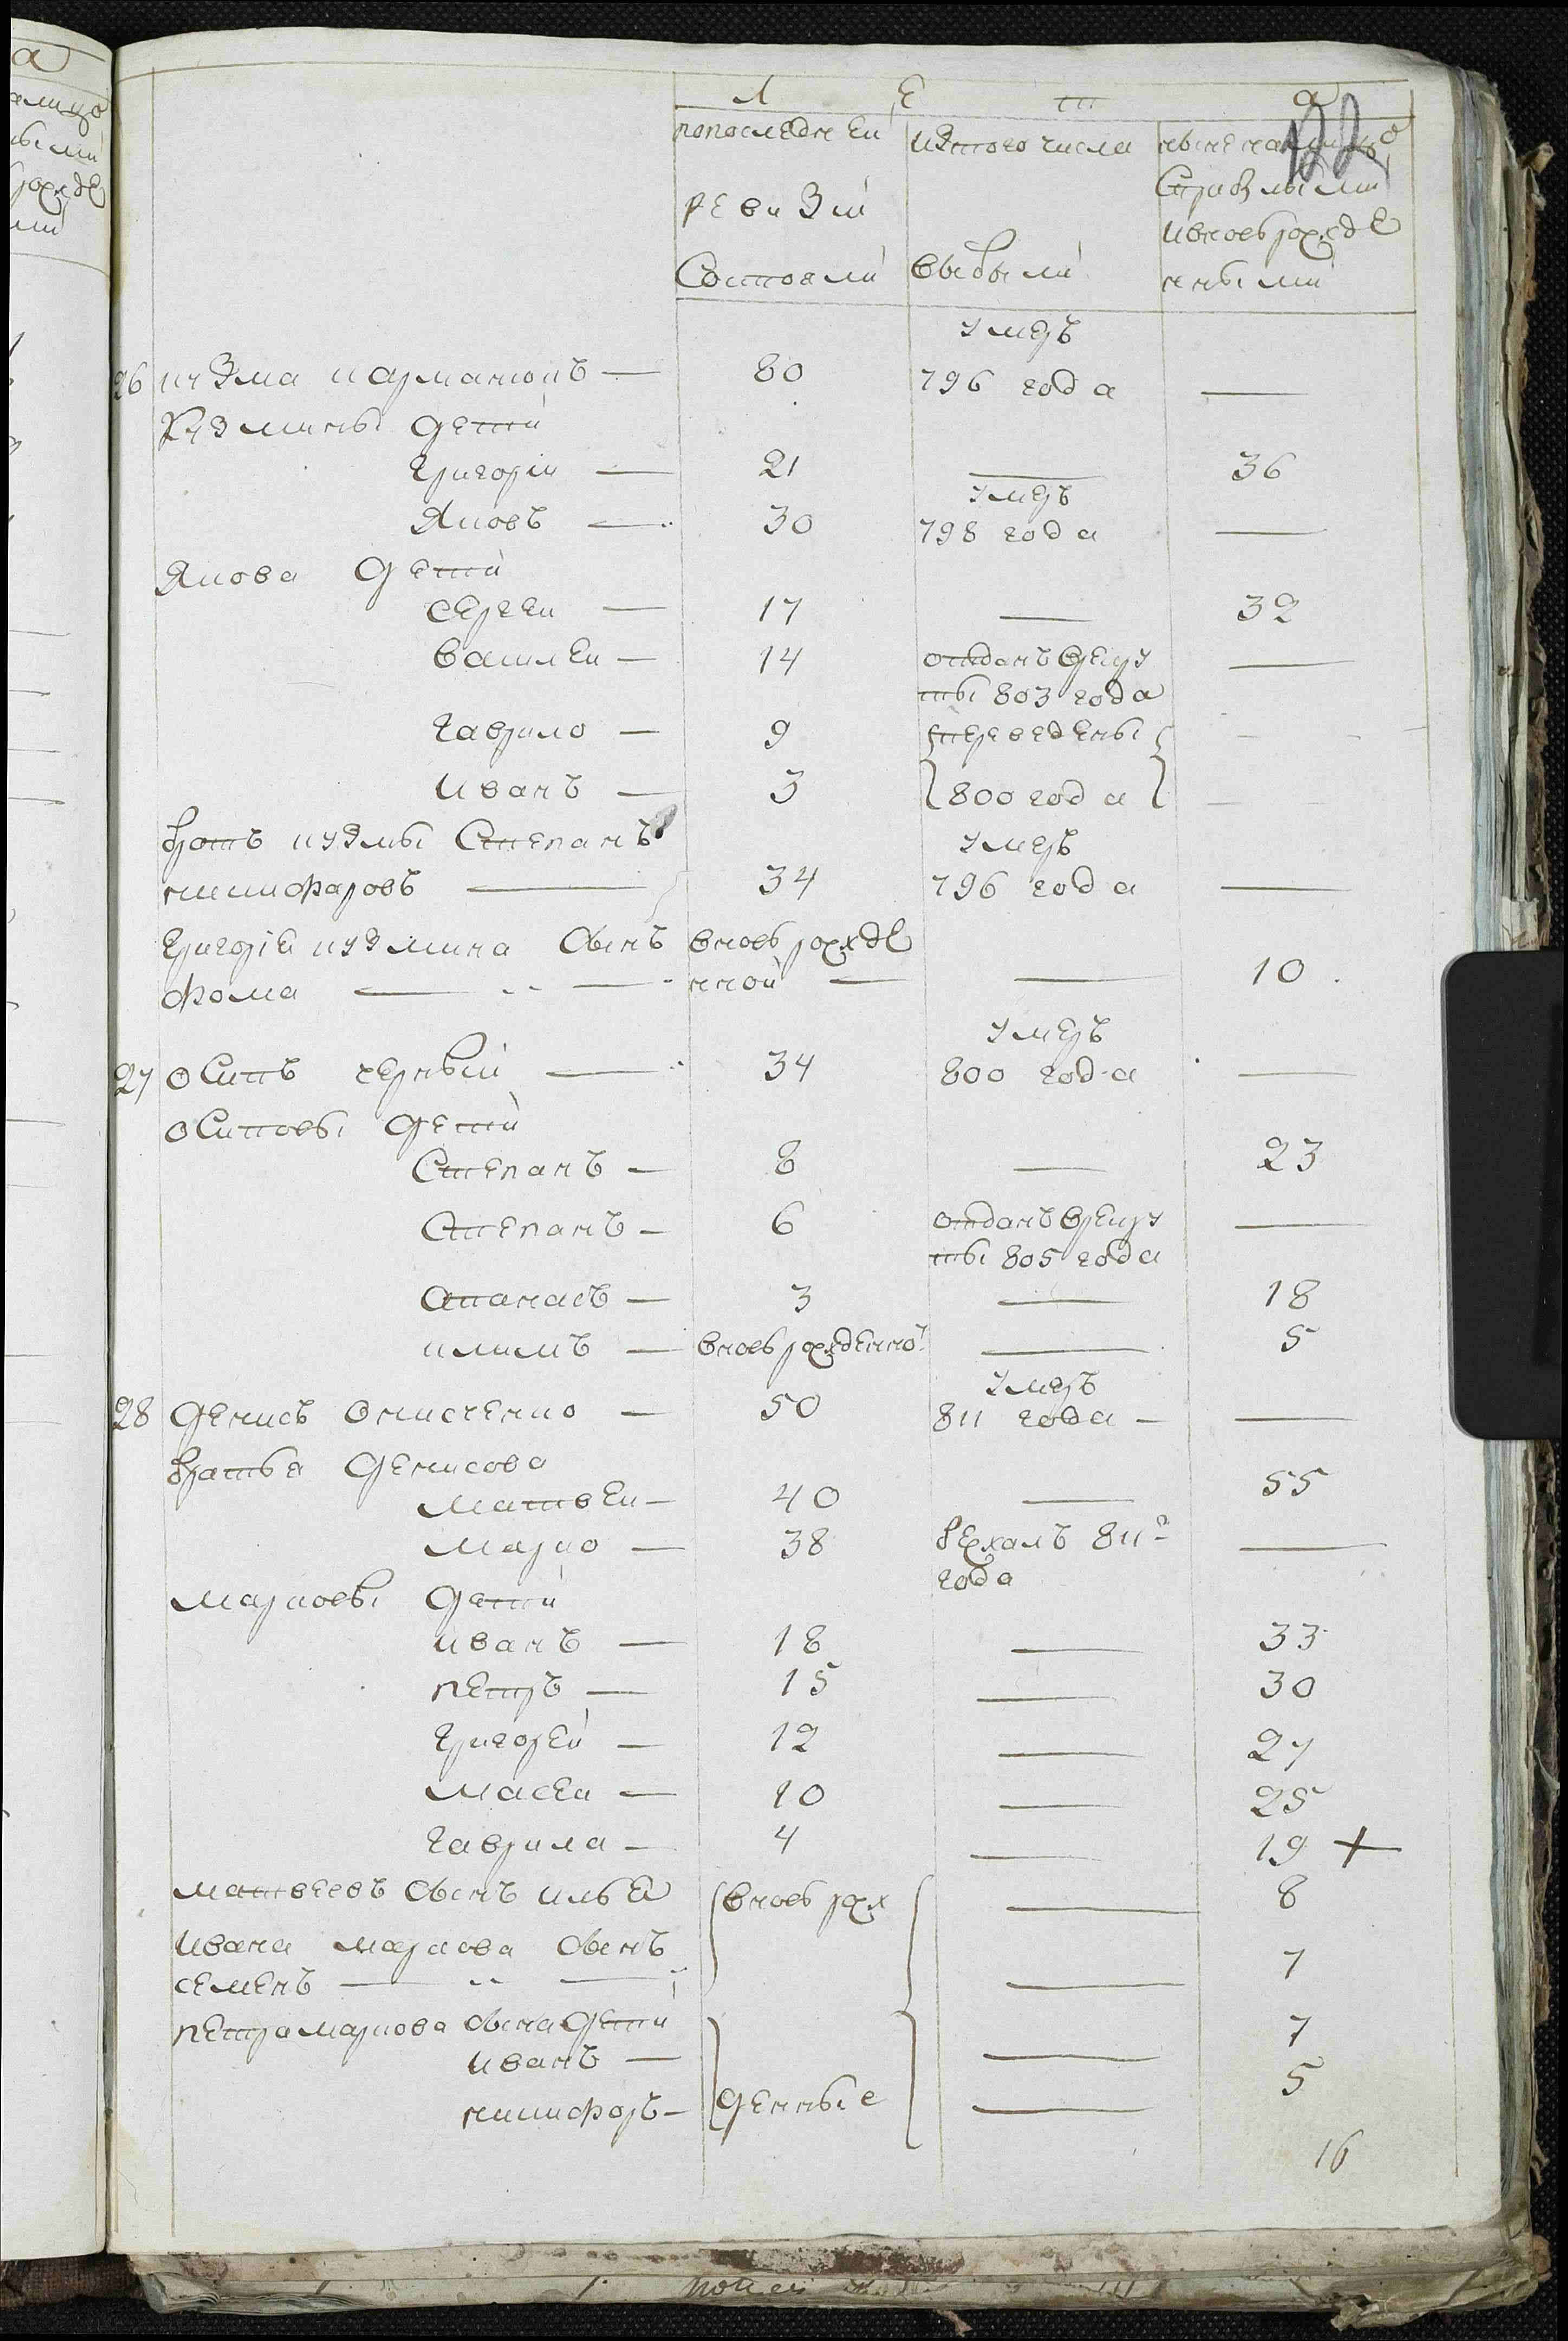 Л Е т а
попоследней
ревизіи
Состояли
изтого числа
выбыли
ныне налицо
Справлыми
ивновьрожде
нными
умеръ
26 кузма кармановъ — 80 796 года —
Кузмины дети
григорій — 21 — 36
умеръ
Яковъ — 30 798 года —
Якова дети
сергеи — 17 — 32
василеи — 14 отданъ врекру —
ты 803 года
гаврило — 9 переведены
иванъ — 3 800 года
братъ кузмы Степанъ умеръ
никифаровъ — 34 796 года —
григоріи кузмина сынъ вновь рожде
фома — нной — — 10
умеръ
27 осипъ черный — 34 800 года —
осиповы дети
Степанъ — 8 — 23
Степанъ — 6 отданъ врекру —
ты 805 года
апанасъ — 3 — 18
климъ — вновь рожденно — 5
умеръ
28 денисъ онисченко — 50 811 года — —
братья денисова
матвеи — 40 — 55
марко — 38 бежалъ 811го —
года
марковы дети
иванъ — 18 — 33
петръ — 15 — 30
григореи — 12 — 27
масеи — 10 — 25
гаврила — 4 — 19 +
матвеевъ сынъ илья вновь рож — 8
ивана маркова сынъ
семенъ — — 7
петра маркова сына дети
иванъ — — 7
никифоръ — денные — 5
16